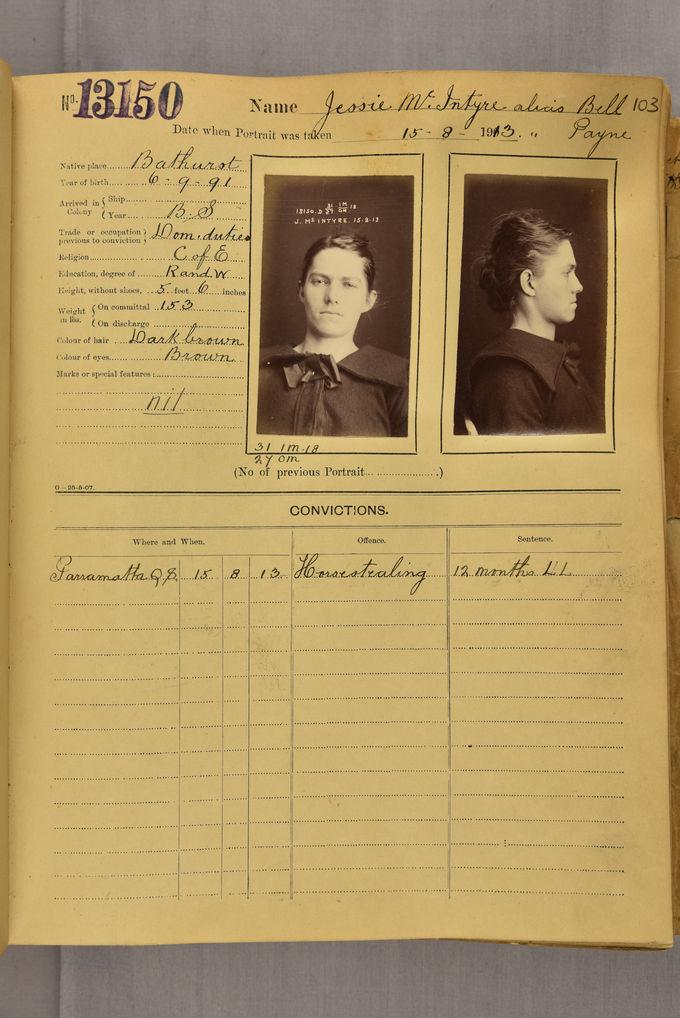 No. 13150
Name Jessie Mc Intyre alias Bell 103
Date when Portrait was taken 15-8-1913. " Payne
Native place Bathurst
Year of birth 6-9-91
Arrived in Colony { Ship
Year B.S
Trade or occupation previous to conviction } Dom. duties
Religion C of E
Education, degree of R and W
Height, without shoes, 5 feet 6 inches
Weight in lbs. { On committal 153
On discharge
Colour of hair Dark brown
Colour of eyes Brown
Marks or special features:
nil
13150. D
J. McINTYRE. 15·8·13
31 1m-18
27 cm
(No of previous Portrait )
G-25-5-07.
CONVICTIONS.
Where and When. Offence. Sentence.
Parramatta Q.S. 15 8 13 Horsestealing 12 months LL